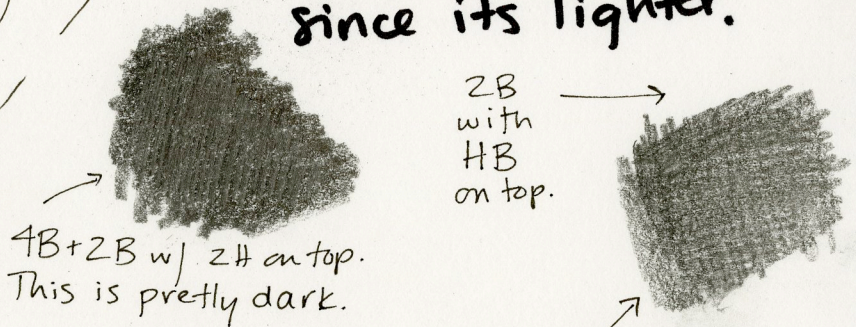 since its lighter.
2B
with
HB
on top.
4B+2B w/ 2H on top.
This is pretty dark.